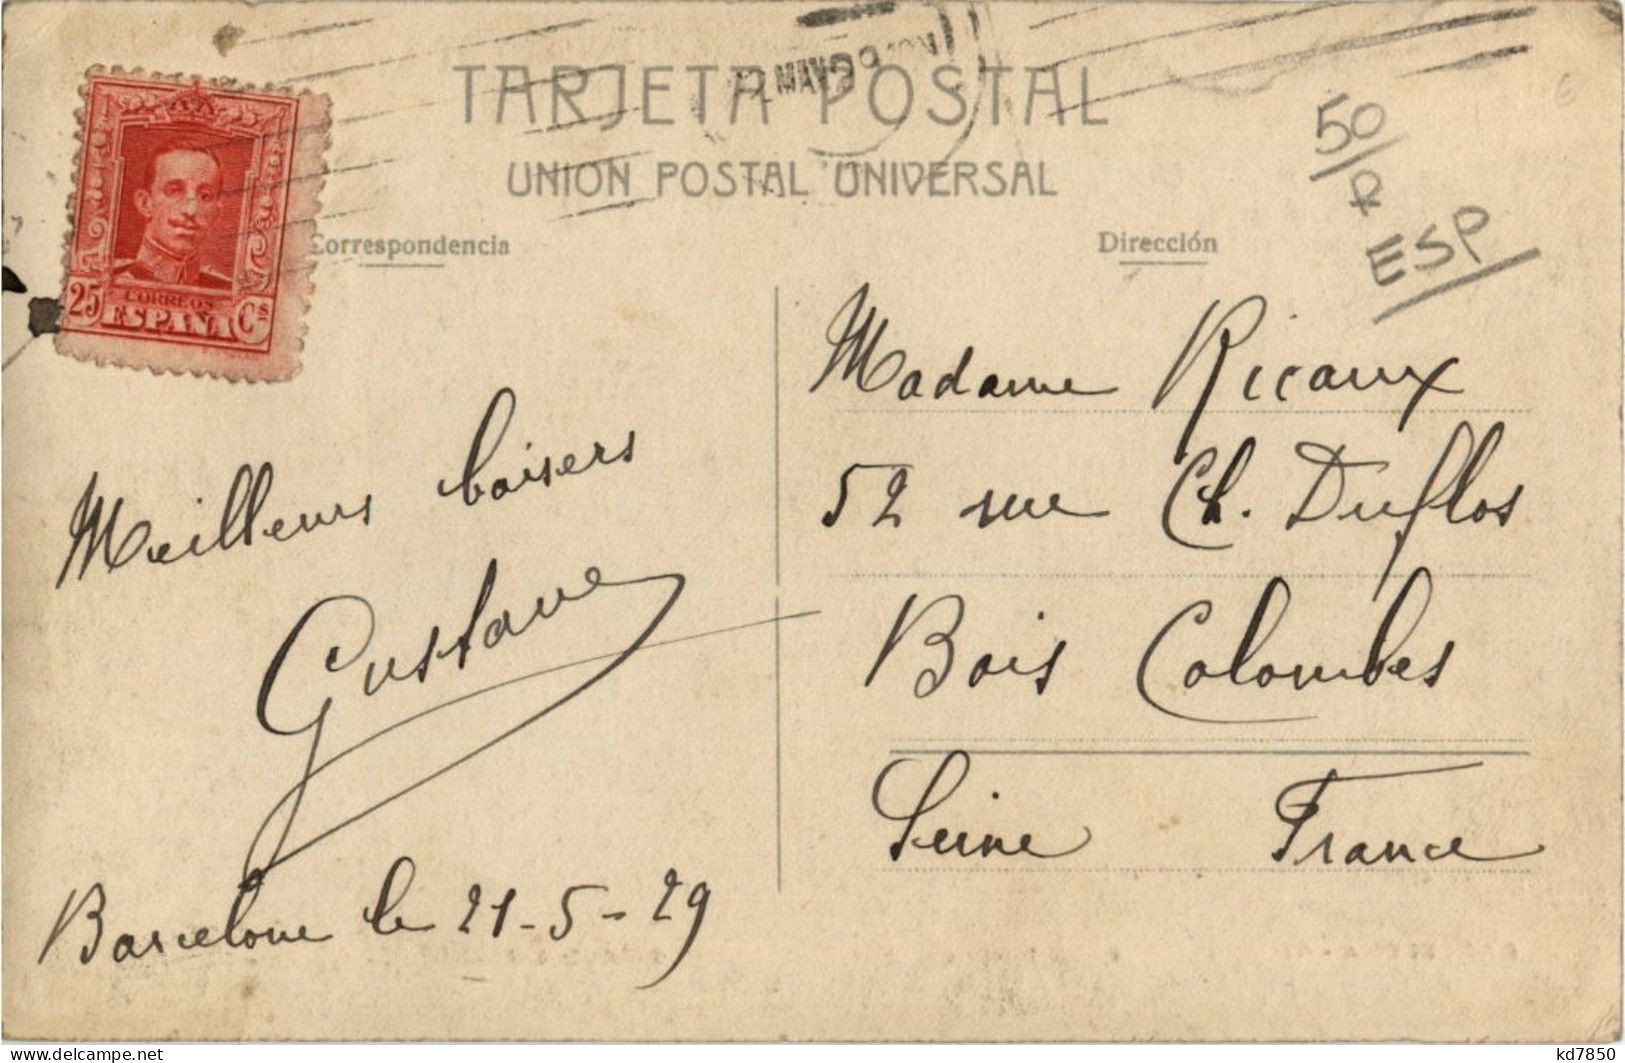 TARJETA POSTAL
MAY 29
UNION POSTAL UNIVERSAL
Correspondencia
Dirección
50
ESP
25 CORREOS Cs
ESPAÑA
Meilleurs baisers
Gustave
Barcelone le 21-5-29
Madame Ricaux
52 rue Ch. Duflos
Bois Colombes
Seine France
www.delcampe.net
kd7850